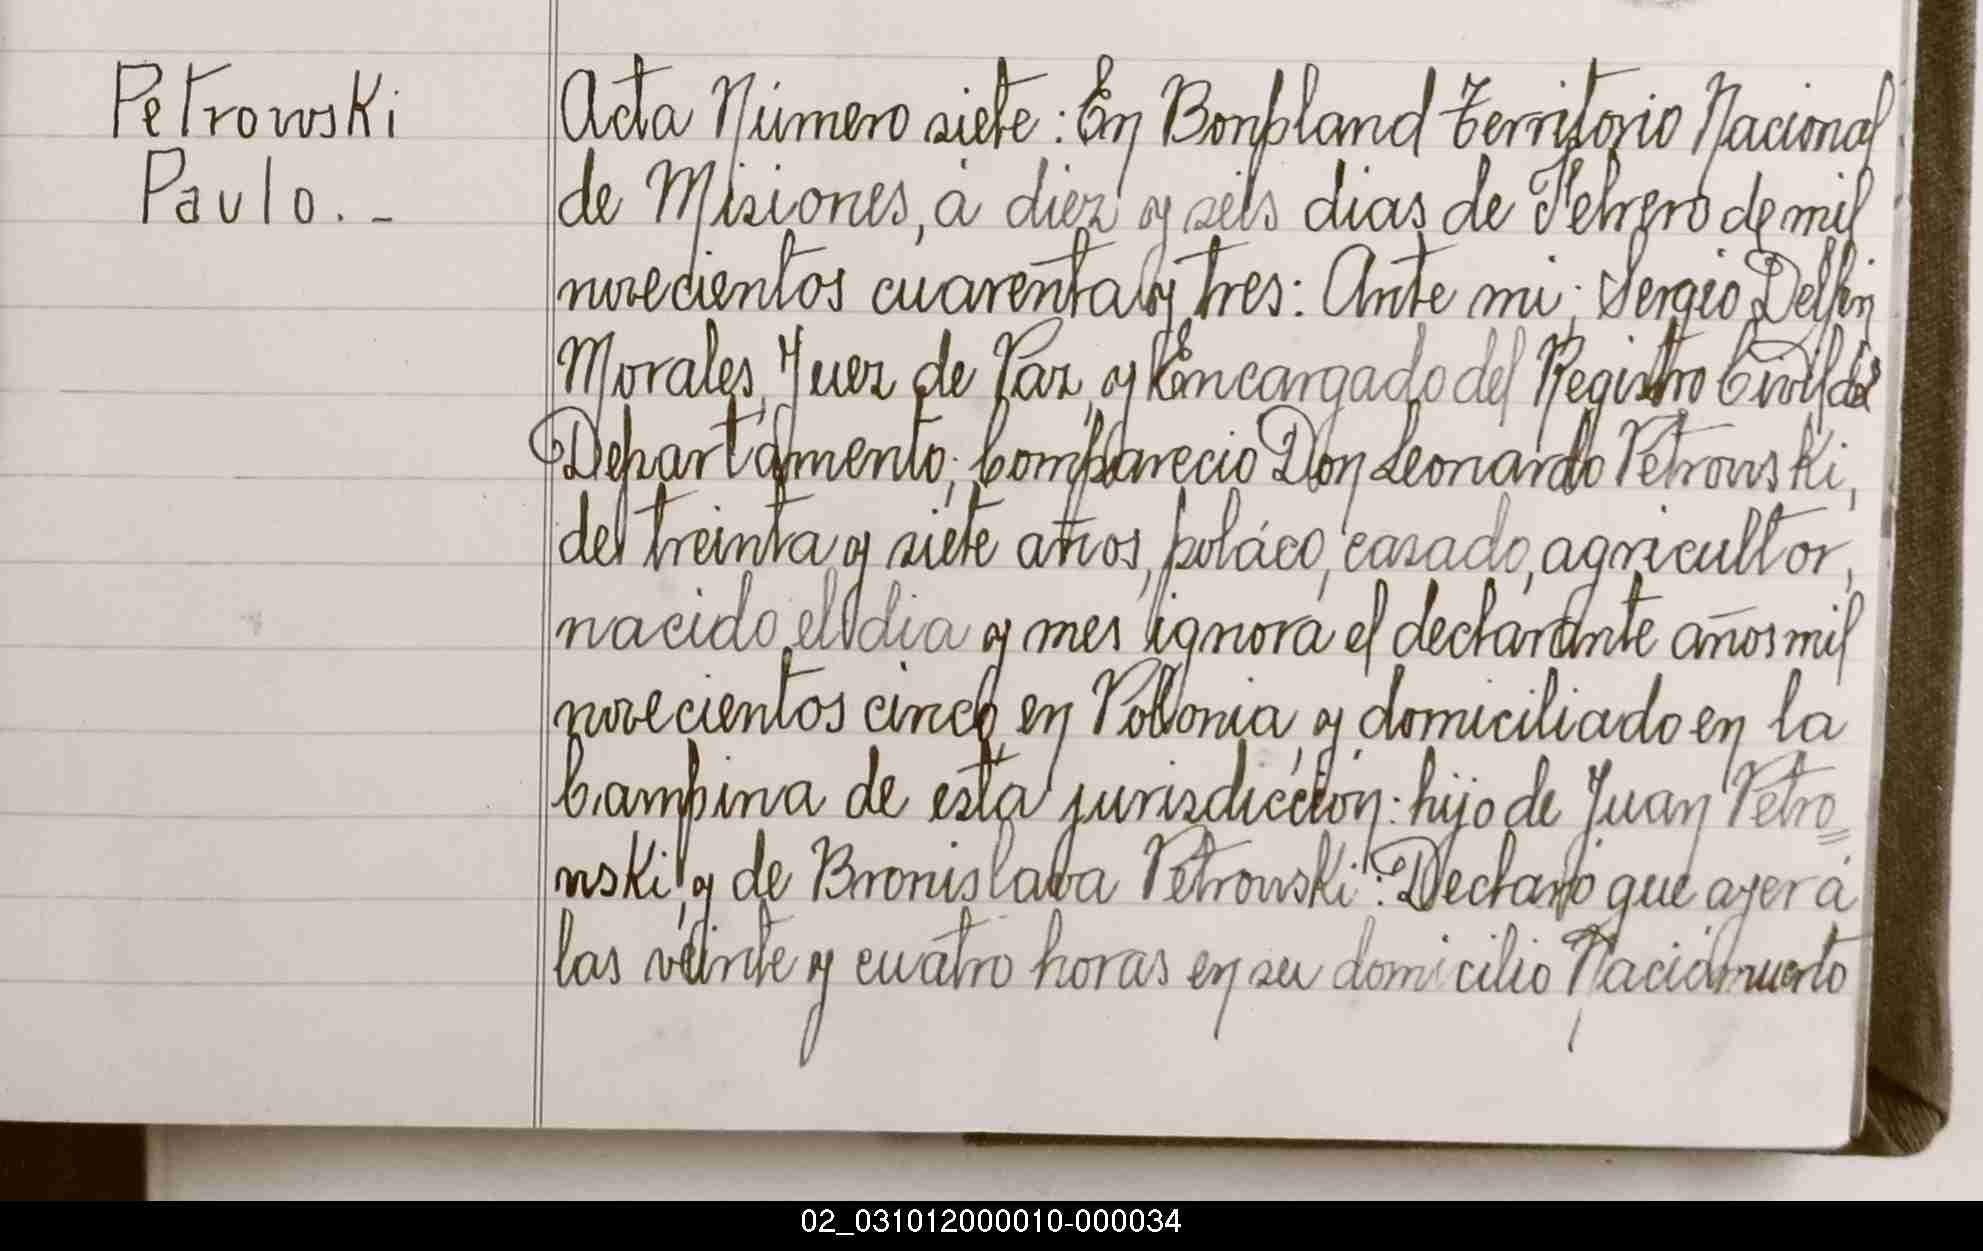 Petrowski
Paulo. -
Acta Número siete: En Bonpland Territorio Nacional
de Misiones, á diez y seis dias de Febrero de mil
novecientos cuarenta y tres: Ante mi; Sergio Delfin
Morales, Juez de Paz, y Encargado del Registro Civil del
Departamento; Comparecio Don Leonardo Petrowski,
de treinta y siete años, poláco, casado, agricultor,
nacido el dia y mes ignora el declarante años mil
novecientos cinco, en Polonia, y domiciliado en la
Campina de esta jurisdicción: hijo de Juan Petro=
wski, y de Bronislava Petrowski: Declaró que ayer á
las veinte y cuatro horas en su domicilio Nació muerto
02_031012000010-000034